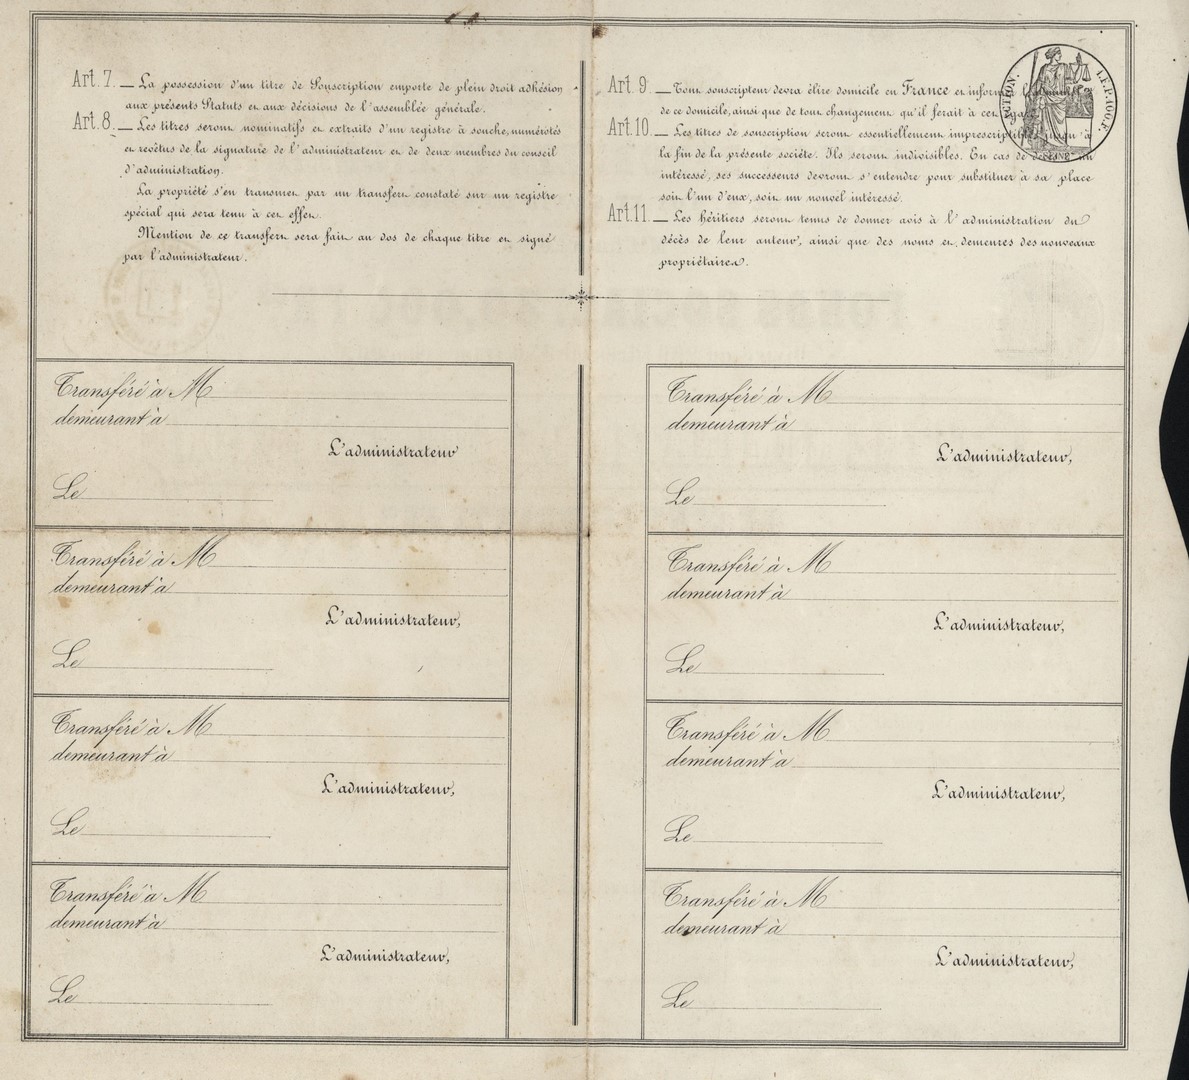 Art. 7. — La possession d'un titre de Souscription emporte de plein droit adhésion
aux présents Statuts et aux décisions de l'assemblée générale.
Art. 8. — Les titres seront nominatifs et extraits d'un registre à souche, numérotés
et revêtus de la signature de l'administrateur et de deux membres du conseil
d'administration.
La propriété s'en transmet par un transfert constaté sur un registre
spécial qui sera tenu à cet effet.
Mention de ce transfert sera fait au dos de chaque titre et signé
par l'administrateur.
Art. 9. — Tout souscripteur devra élire domicile en France et informer
de ce domicile, ainsi que de tout changement qu'il ferait à cet
Art. 10. — Les titres de souscription seront essentiellement imprescriptibles jusqu'à
la fin de la présente société. Ils seront indivisibles. En cas de décès d'un
intéressé, ses successeurs devront s'entendre pour substituer à sa place
soit l'un d'eux, soit un nouvel intéressé.
Art. 11. — Les héritiers seront tenus de donner avis à l'administration du
décès de leur auteur, ainsi que des noms et demeures des nouveaux
propriétaires.
ACTION.
Transféré à M
demeurant à
L'administrateur
Le
Transféré à M
demeurant à
L'administrateur,
Le
Transféré à M
demeurant à
L'administrateur,
Le
Transféré à M
demeurant à
L'administrateur,
Le
Transféré à M
demeurant à
L'administrateur,
Le
Transféré à M
demeurant à
L'administrateur,
Le
Transféré à M
demeurant à
L'administrateur,
Le
Transféré à M
demeurant à
L'administrateur,
Le